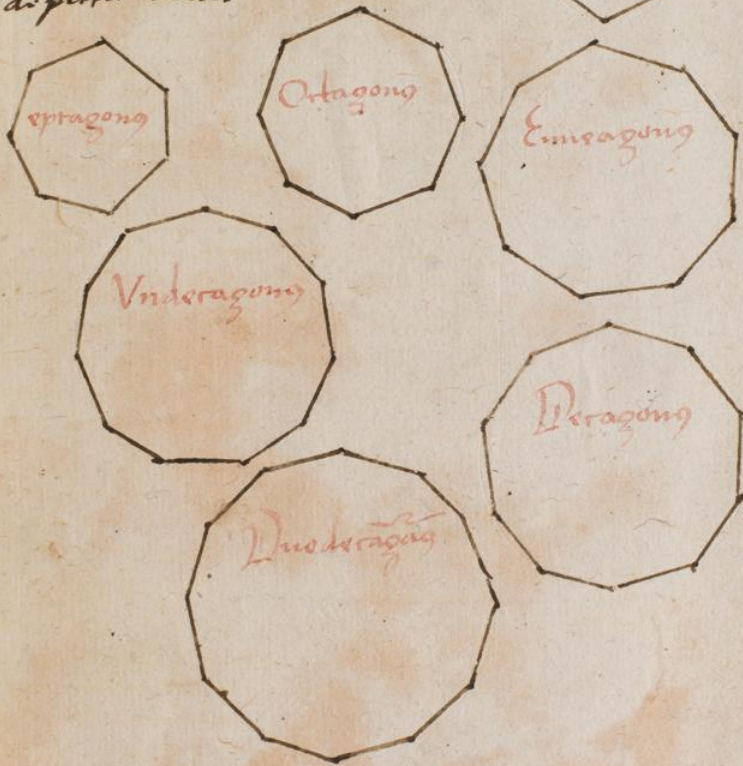 eptagonꝰ
Octagonꝰ
Enneagonꝰ
Vndecagonꝰ
Decagonꝰ